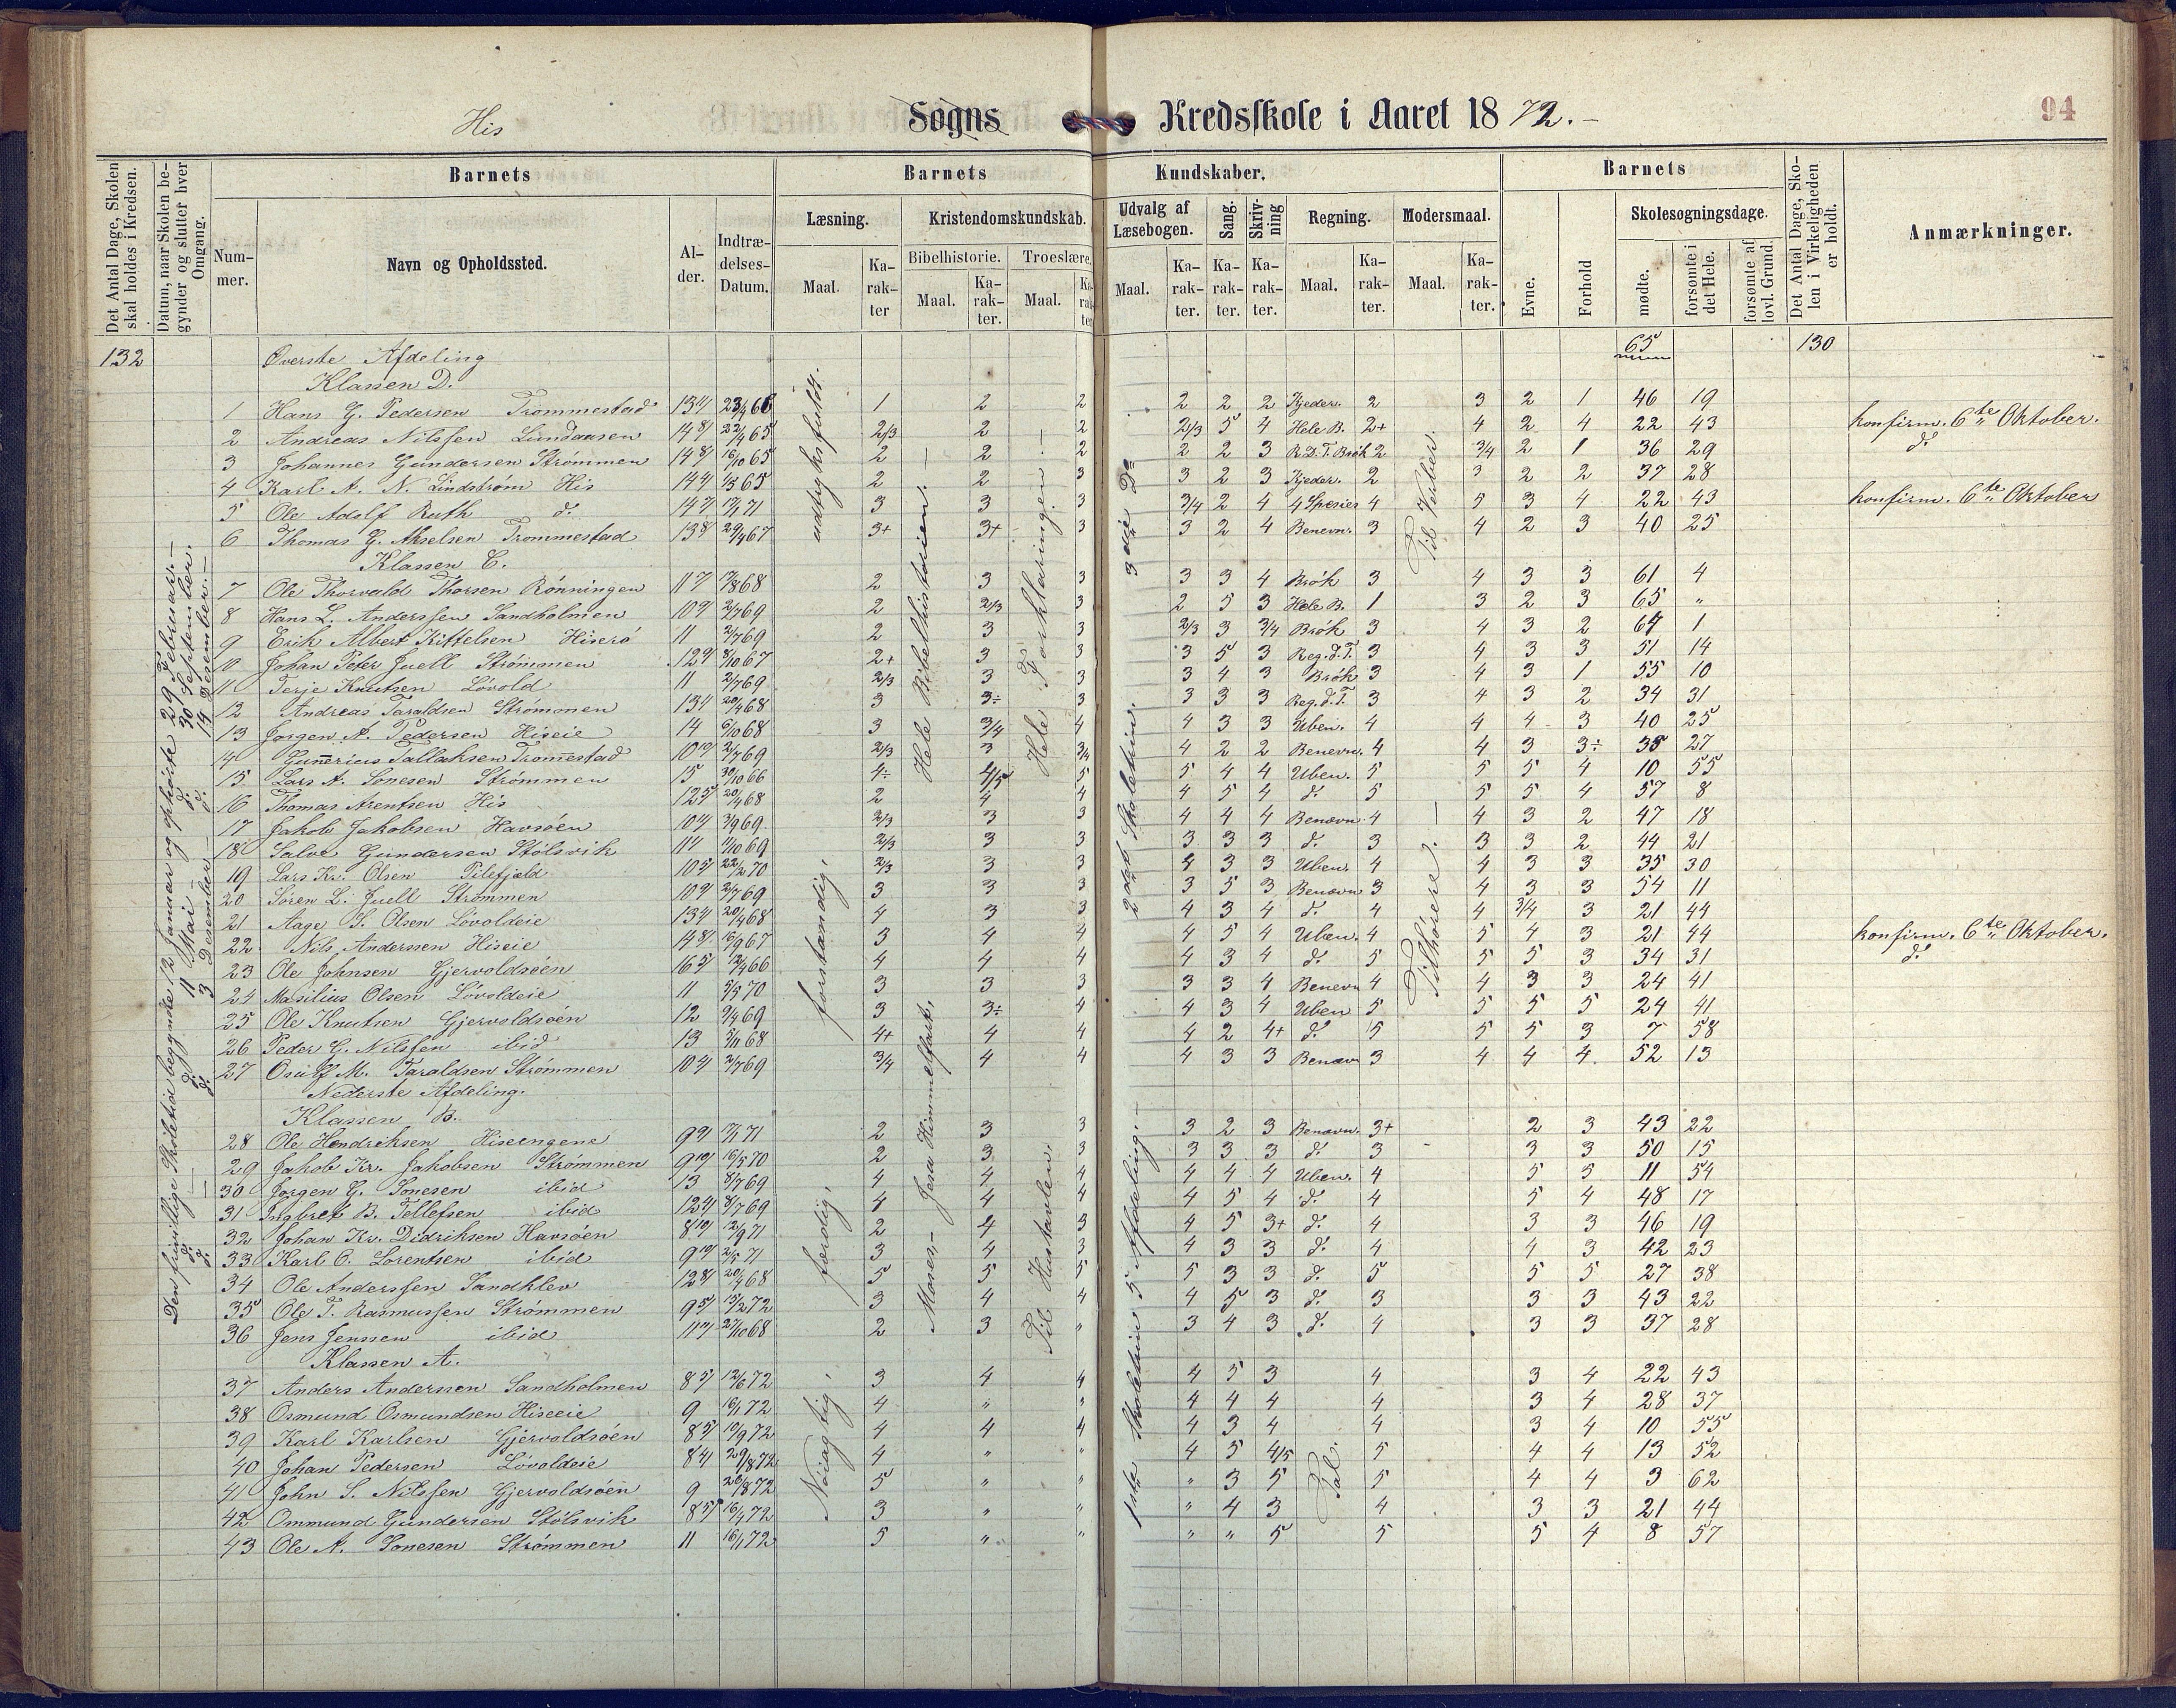 His Sogns Kredsskole i Aaret 1872.-
94
Det Antal Dage, Skolen skal holdes i Kredsen.
Datum, naar Skolen begynder og slutter hver Omgang.
Barnets
Nummer.
Navn og Opholdssted.
Alder.
Indtrædelses-Datum.
Barnets Kundskaber.
Læsning.
Maal.
Karakter
Kristendomskundskab.
Bibelhistorie.
Maal.
Karakter.
Troeslære.
Maal.
Karakter
Udvalg af Læsebogen.
Maal.
Karakter.
Sang.
Karakter.
Skrivning
Karakter.
Regning.
Maal.
Karakter.
Modersmaal.
Maal.
Karakter.
Barnets
Evne.
Forhold
Skolesøgningsdage.
mødte.
forsømte i det Hele.
forsømte af lovl. Grund.
Det Antal Dage, Skolen i Virkeligheden er holdt.
Anmærkninger.
132 Øverste Afdeling 65 130
Klassen D.
1 Hans G. Pedersen Trommestad 2 2 2 2 2 Kjeder. 2 3 2 1 46 19
2 Andreas Nilssen Lundaasen 22/4 65 2/3 2 2 2/3 5 4 Hele B. 2+ 4 2 4 22 43 konfirm. 6te Oktober.
3 Johannes Gundersen Strømmen 16/10 65 2 2 2 2 2 3 R.D.T. Brøk 2 3/4 2 1 36 29 do
4 Karl A. N. Lindstrøm His 2 2 3 3 2 3 Kjeder. 2 3 2 2 37 28
5 Ole Adolf Ruth do 3 3 3 3/4 2 4 4 Spesier 4 5 3 4 22 43 konfirm. 6te Oktober
6 Thomas G. Akselsen Trommestad 29/4 67 3+ 3+ 3 3 2 4 Benevn. 3 4 2 3 40 25
Klassen C.
7 Ole Thorvald Thorsen Rønningen 2 3 3 3 3 4 Brøk 3 4 3 3 61 4
8 Hans L. Anderssen Sandholmen 2/7 69 2 2/3 3 2 5 3 Hele B. 1 3 2 3 65 "
9 Erik Albert Kittelsen Hiserø 11 2/7 69 2 3 3 2/3 3 3/4 Brøk 3 4 3 2 64 1
10 Johan Peter Juell Strømmen 8/10 67 2+ 3 3 3 5 3 Reg.d.T. 3 4 3 3 51 14
11 Terje Knutsen Løvold 11 2/7 69 2/3 3 3 3 4 3 Brøk 3 4 3 1 55 10
12 Andreas Taraldsen Strømmen 20/4 68 3 3÷ 3 3 3 3 Reg.d.T. 3 4 3 2 34 31
13 Jørgen A. Pedersen Hiseie 14 6/10 68 3 3/4 4 4 3 3 Uben. 4 4 4 3 40 25
14 Gunnerius Tallaksen Trommestad 2/7 69 2/3 3 3/4 4 2 2 Benevn. 4 4 3 3÷ 38 27
15 Lars A. Sonesen Strømmen 15 30/10 66 4÷ 4/5 5 5 4 4 Uben. 5 5 5 4 10 55
16 Thomas Arentsen His 20/4 68 2 4 4 4 5 4 do 5 5 5 4 57 8
17 Jakob Jakobsen Havsøen 3/9 69 2/3 3 3 4 4 4 Benævn 4 4 3 2 47 18
18 Salve Gundersen Stølsvik 11/10 69 2/3 3 3 3 3 3 do 3 3 3 2 44 21
19 Lars Kr. Olsen Pilefjeld 22/2 70 2/3 3 3 4 3 3 Uben. 4 4 3 3 35 30
20 Søren L. Juell Strømmen 2/7 69 3 3 3 3 5 3 Benævn 3 4 3 3 54 11
21 Aage S. Olsen Løvoldeie 20/4 68 4 3 3 4 3 4 do 4 4 3/4 3 21 44
22 Nils Anderssen Hiseie 16/9 67 3 4 4 4 5 4 Uben. 4 5 4 3 21 44 konfirm. 6te Oktober.
23 Ole Johnsen Gjervoldsøen 12/4 66 4 4 4 4 3 4 do 5 5 5 3 34 31 do
24 Masilius Olsen Løvoldeie 11 5/5 70 3 3 3 3 3 4 Benevn 4 4 3 3 24 41
25 Ole Knutsen Gjervoldsøen 12 9/4 69 3 3÷ 4 4 3 4 Uben 5 5 5 5 24 41
26 Peder G. Nilssen ibid 13 5/11 68 4+ 4 4 4 2 4+ do 5 5 5 3 7 58
27 Osulf M. Taraldsen Strømmen 2/7 69 3/4 4 4 4 3 3 Benævn 3 4 4 4 52 13
Nederste Afdeling.
Klassen B.
28 Ole Hendriksen Hiseengene 2 3 3 3 2 3 Benævn. 3+ 2 3 43 22
29 Jakob Kr. Jakobsen Strømmen 16/5 70 2 3 3 3 3 3 do 3 3 3 50 15
30 Jørgen G. Sonesen ibid 13 8/7 69 4 4 4 4 4 4 Uben. 4 5 5 11 54
31 Ingbret B. Tellefsen ibid 8/7 69 4 4 4 4 5 4 do 4 5 4 48 17
32 Johan Kr. Didriksen Havsøen 12/9 71 2 4 3 4 5 3+ do 4 3 3 46 19
33 Karl O. Lorentsen ibid 2/5 71 3 4 3 4 3 3 do 4 4 3 42 23
34 Ole Anderssen Sandklev 20/4 68 5 5 5 5 3 3 do 5 5 5 27 38
35 Ole T. Rasmussen Strømmen 15/2 72 3 4 4 4 5 3 do 3 3 3 43 22
36 Jens Jenssen ibid 27/10 68 2 3 " 3 4 3 do 4 3 3 37 28
Klassen A.
37 Anders Anderssen Sandholmen 12/6 72 3 4 4 4 5 3 4 3 4 22 43
38 Osmund Osmundsen Hiseeie 9 16/1 72 4 " " 4 4 4 4 3 4 28 37
39 Karl Karlsen Gjervoldsøen 4 4 4 4 3 4 4 3 4 10 55
40 Johan Pedersen Løvoldeie 29/8 72 4 " " 4 5 4/5 5 4 4 13 52
41 John S. Nilssen Gjervoldsøen 9 5 " " " 3 5 5 4 4 3 62
42 Ommund Gundersen Stølsvik 3 " " " 4 3 4 3 3 21 44
43 Ole A. Sonesen Strømmen 11 16/1 72 5 " " " " 5 5 5 4 8 57
Den frivillige Skoletid begyndte 12 Januar og ophørte 29 Februar.-
do do 11 Mai - do 30 September.
do do 3 Desember - do 14 Desember.-
udtryksfuldt.
forstandig,
færdig,
Nøiagtig,
Hele Bibelhistorien.
Moses - Jesu Himmelfart.
Hele Forklaringen.
Til Hustavlen.
3die Do
2det Skoletrin.
1ste Skoletrin 5 Afdeling.-
Tal.
Til Verber.
Tilhørere.